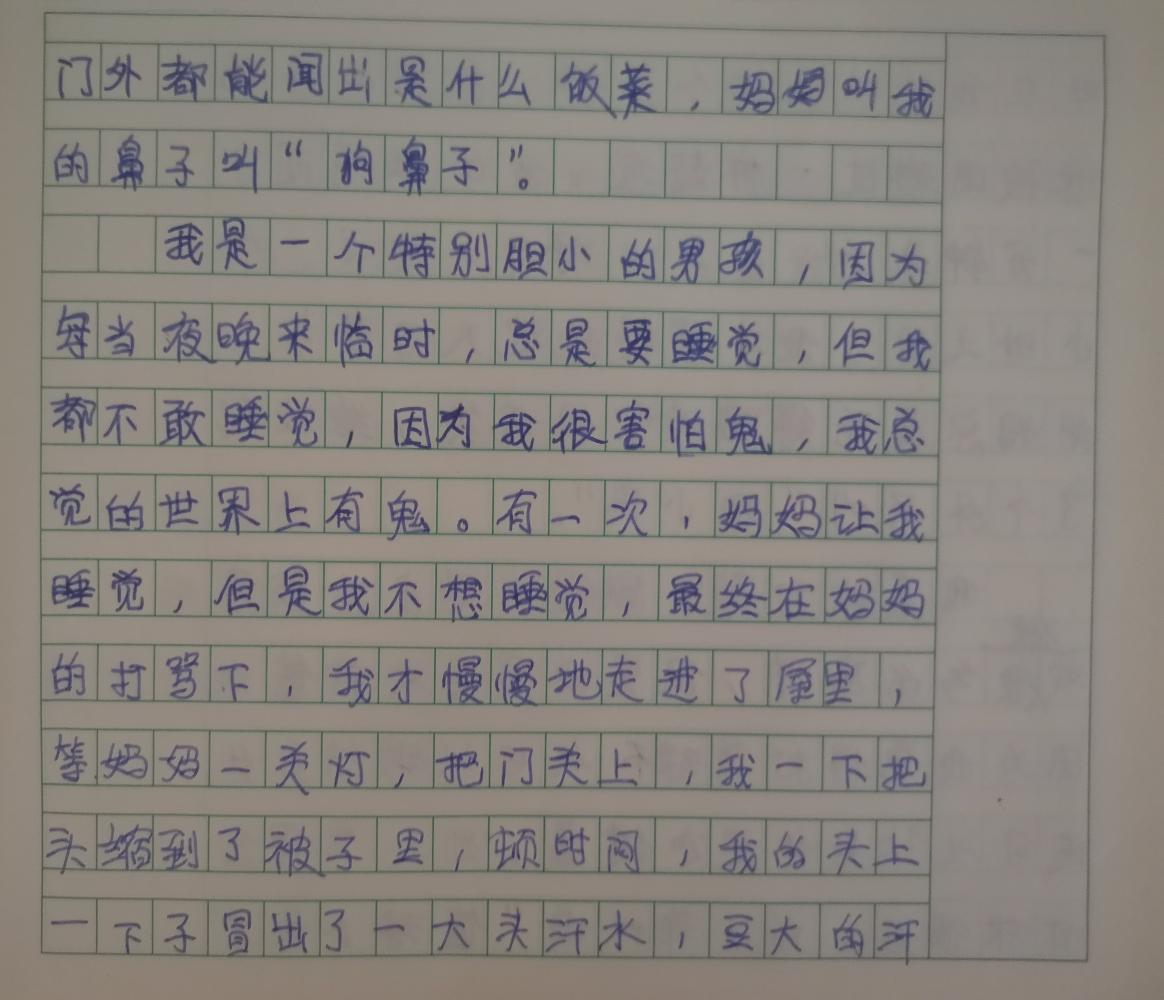 门外都能闻出是什么饭菜，妈妈叫我
的鼻子叫“狗鼻子”。
我是一个特别胆小的男孩，因为
每当夜晚来临时，总是要睡觉，但我
都不敢睡觉，因为我很害怕鬼，我总
觉的世界上有鬼。有一次，妈妈让我
睡觉，但是我不想睡觉，最终在妈妈
的打骂下，我才慢慢地走进了屋里，
等妈妈一关灯，把门关上，我一下把
头缩到了被子里，顿时间，我的头上
一下子冒出了一大头汗水，豆大的汗